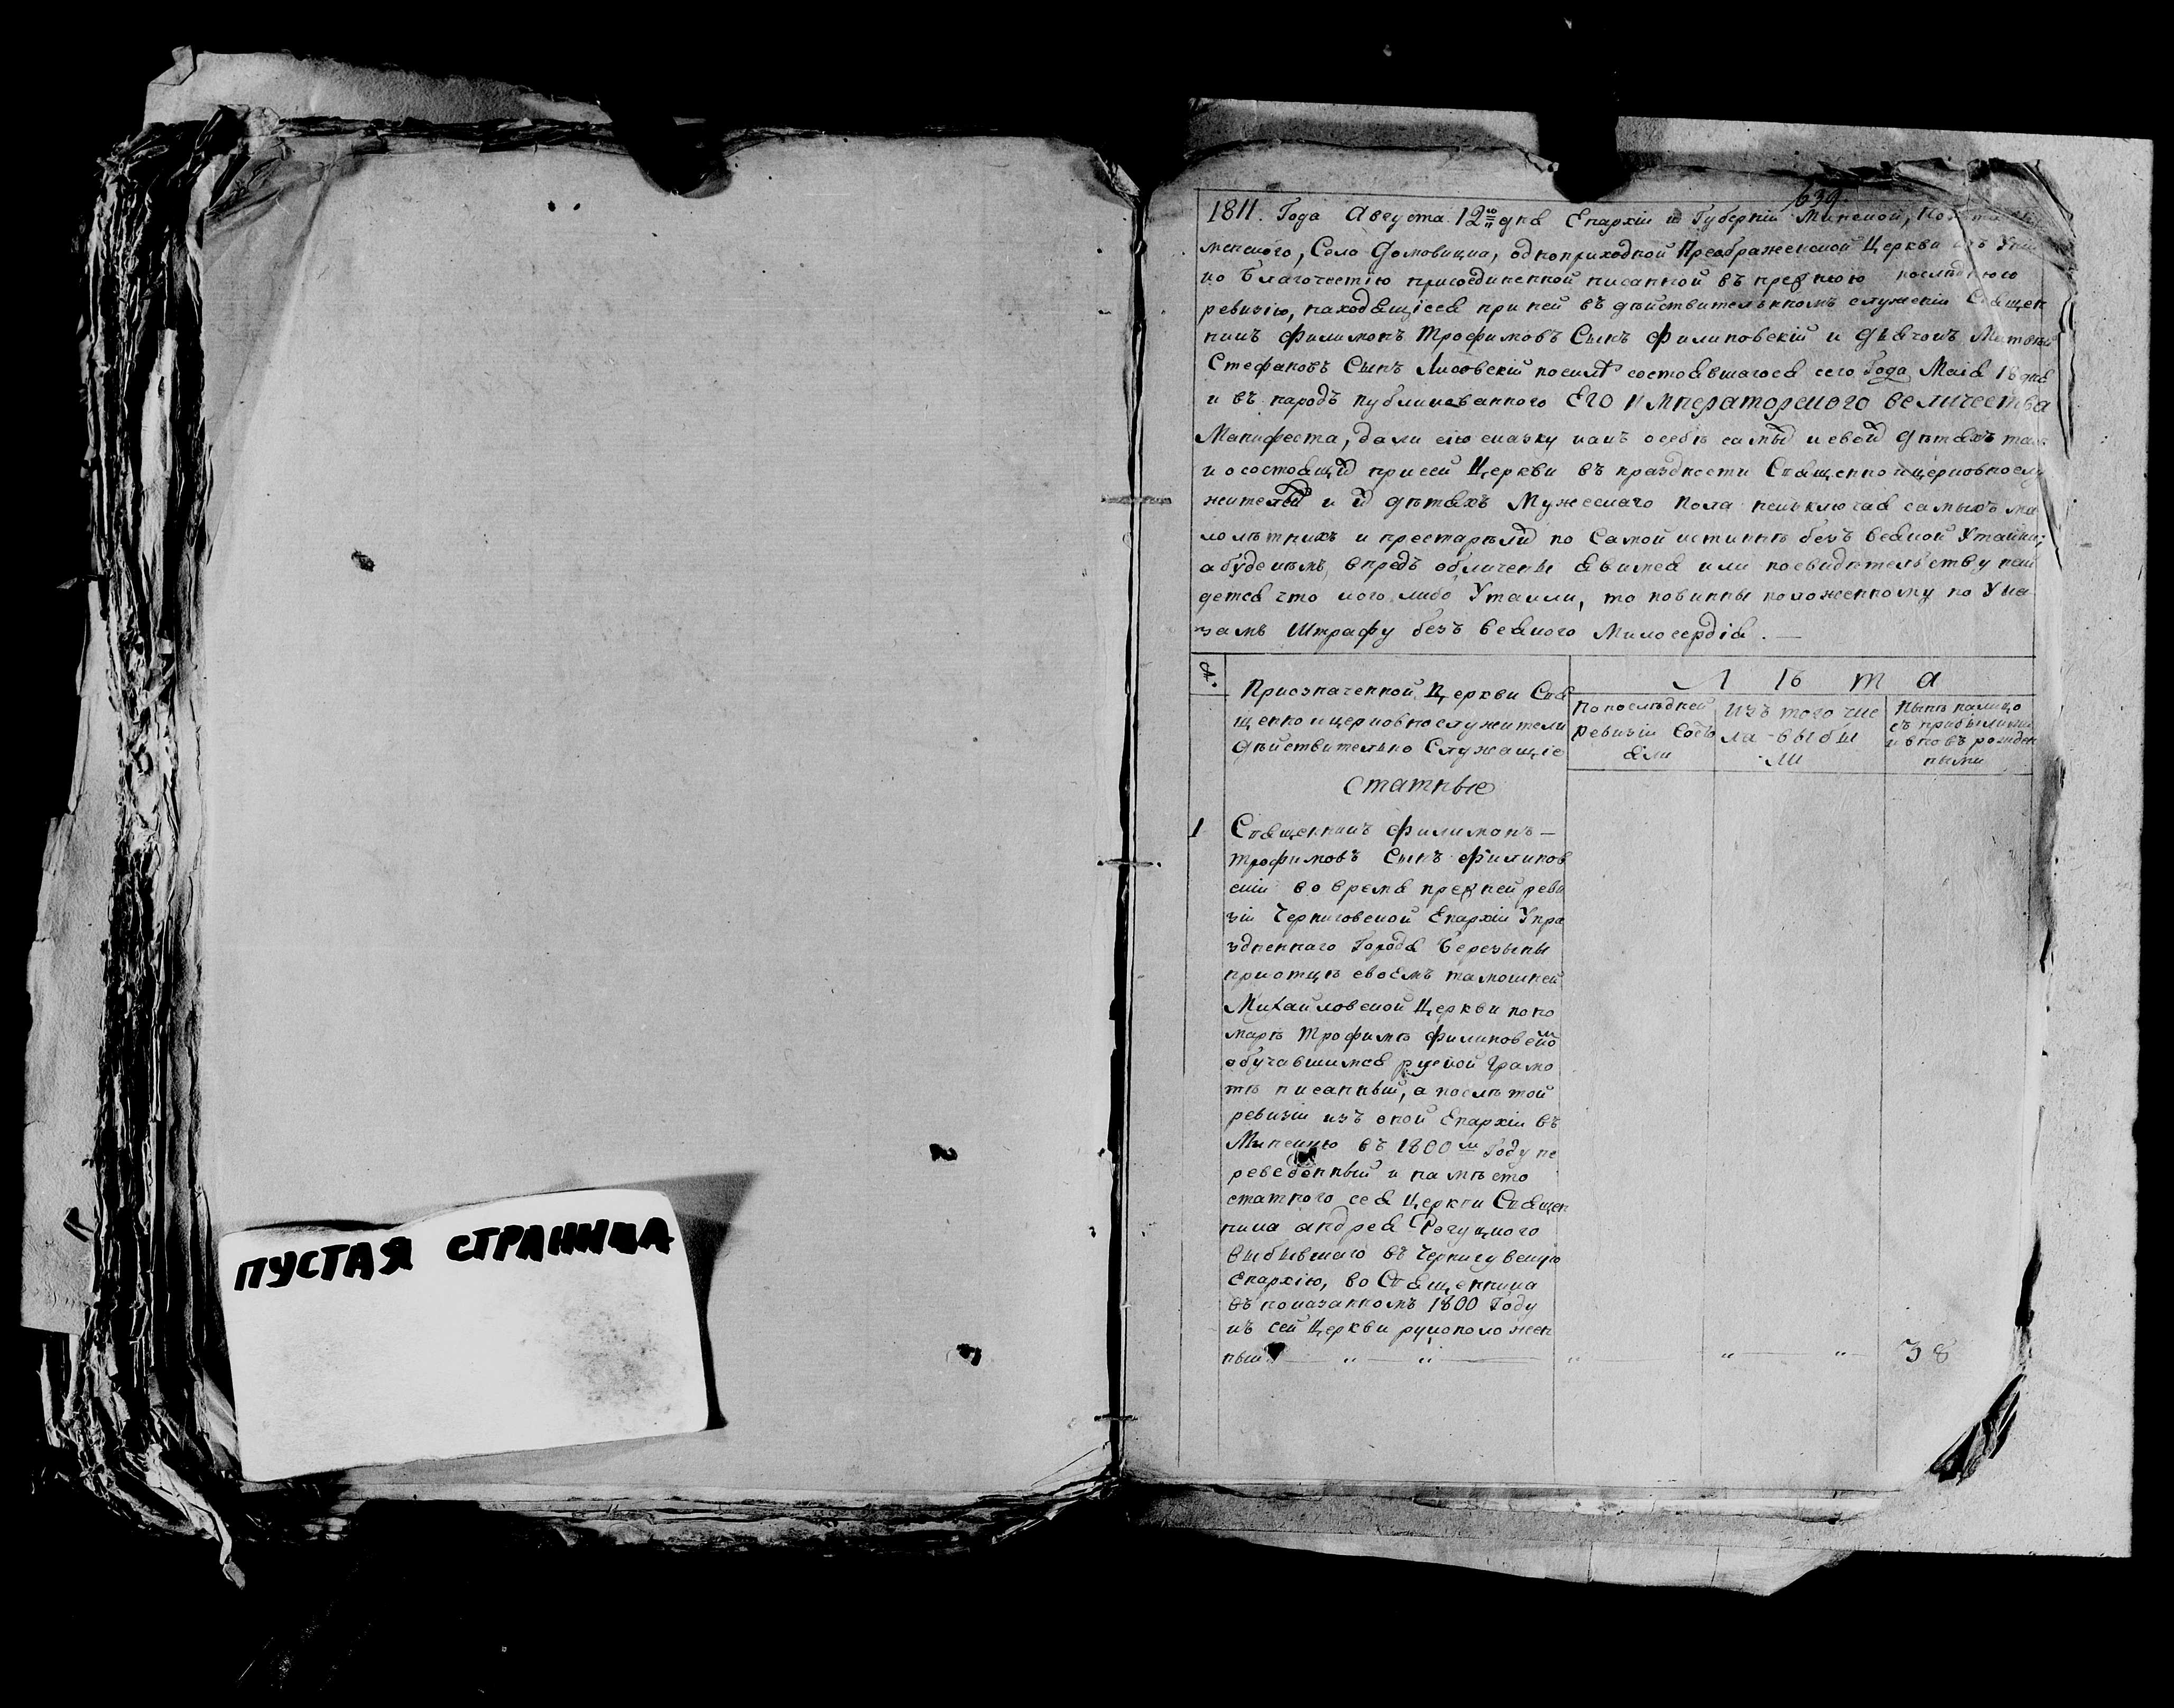 ПУСТАЯ СТРАНИЦА
639.
1811. Года Августа 12го дня Епархіи и Губерніи Минской,
менского, Села Домовицка, одноприходной Преображенской Церкви изъ Уніи
ко благочестію присоединенной писанной въ прежнюю последнюю
ревизію, находящіеся при ней въ действительномъ служеніи Священ
никъ Филимонъ Трофимовъ Сынъ Филиповскій и Дьячокъ Матвей
Стефановъ Сынъ Лисовскій после состоявшагося сего Года Маія 18 дня
и въ народъ публикованного ЕГО Императорского величества
Манифеста, дали сію сказку какъ о себѣ самых и своих дѣтяхъ такъ
и о состоящих при сей Церкви въ праздности Священно и церковнослу
жителей и их дѣтяхъ Мужескаго пола неизключая самыхъ ма
лолѣтнихъ и престарѣлых по самой истиннѣ безъ всякой Утайки;
а буде кѣмъ впредъ обличены явимся или по свидѣтельству най
детса что кого либо Утаили, то повинны положенному по Ука
замъ Штрафу безъ всякого Милосердія. —
№.
Приозначенной Церкви Свя
щенно и церковнослужители
дѣйствительно Служащіе
Л ѣ т а
По послѣдней
ревизіи состо
яли
Изъ того чис
ла выбы
ли
Нынѣ налицо
съ прибылыми
и вновь рожден
ными
Статные
1 Священникъ Филимонъ —
Трофимовъ Сынъ Филипов
скій во время прежней реви
зіи Черниговской Епархіи Упра
здненнаго Города Березыны
при отцѣ своемъ тамошней
Михайловской Церкви поно
марѣ Трофимѣ Филиповском
обучавшимся руской Грамо
тѣ писанный, а послѣ той
ревизіи изъ оной Епархіи въ
Минскую въ 1800м Году пе
реведенный и на мѣсто
статного сея Церкви Священ
ника Андрея Рогуцкого
выбывшаго въ Чернигувскую
Епархію, во Священника
въ показанномъ 1800 Году
къ сей Церкви рукоположен
ный — „ — „ — „ — „ — „ 38